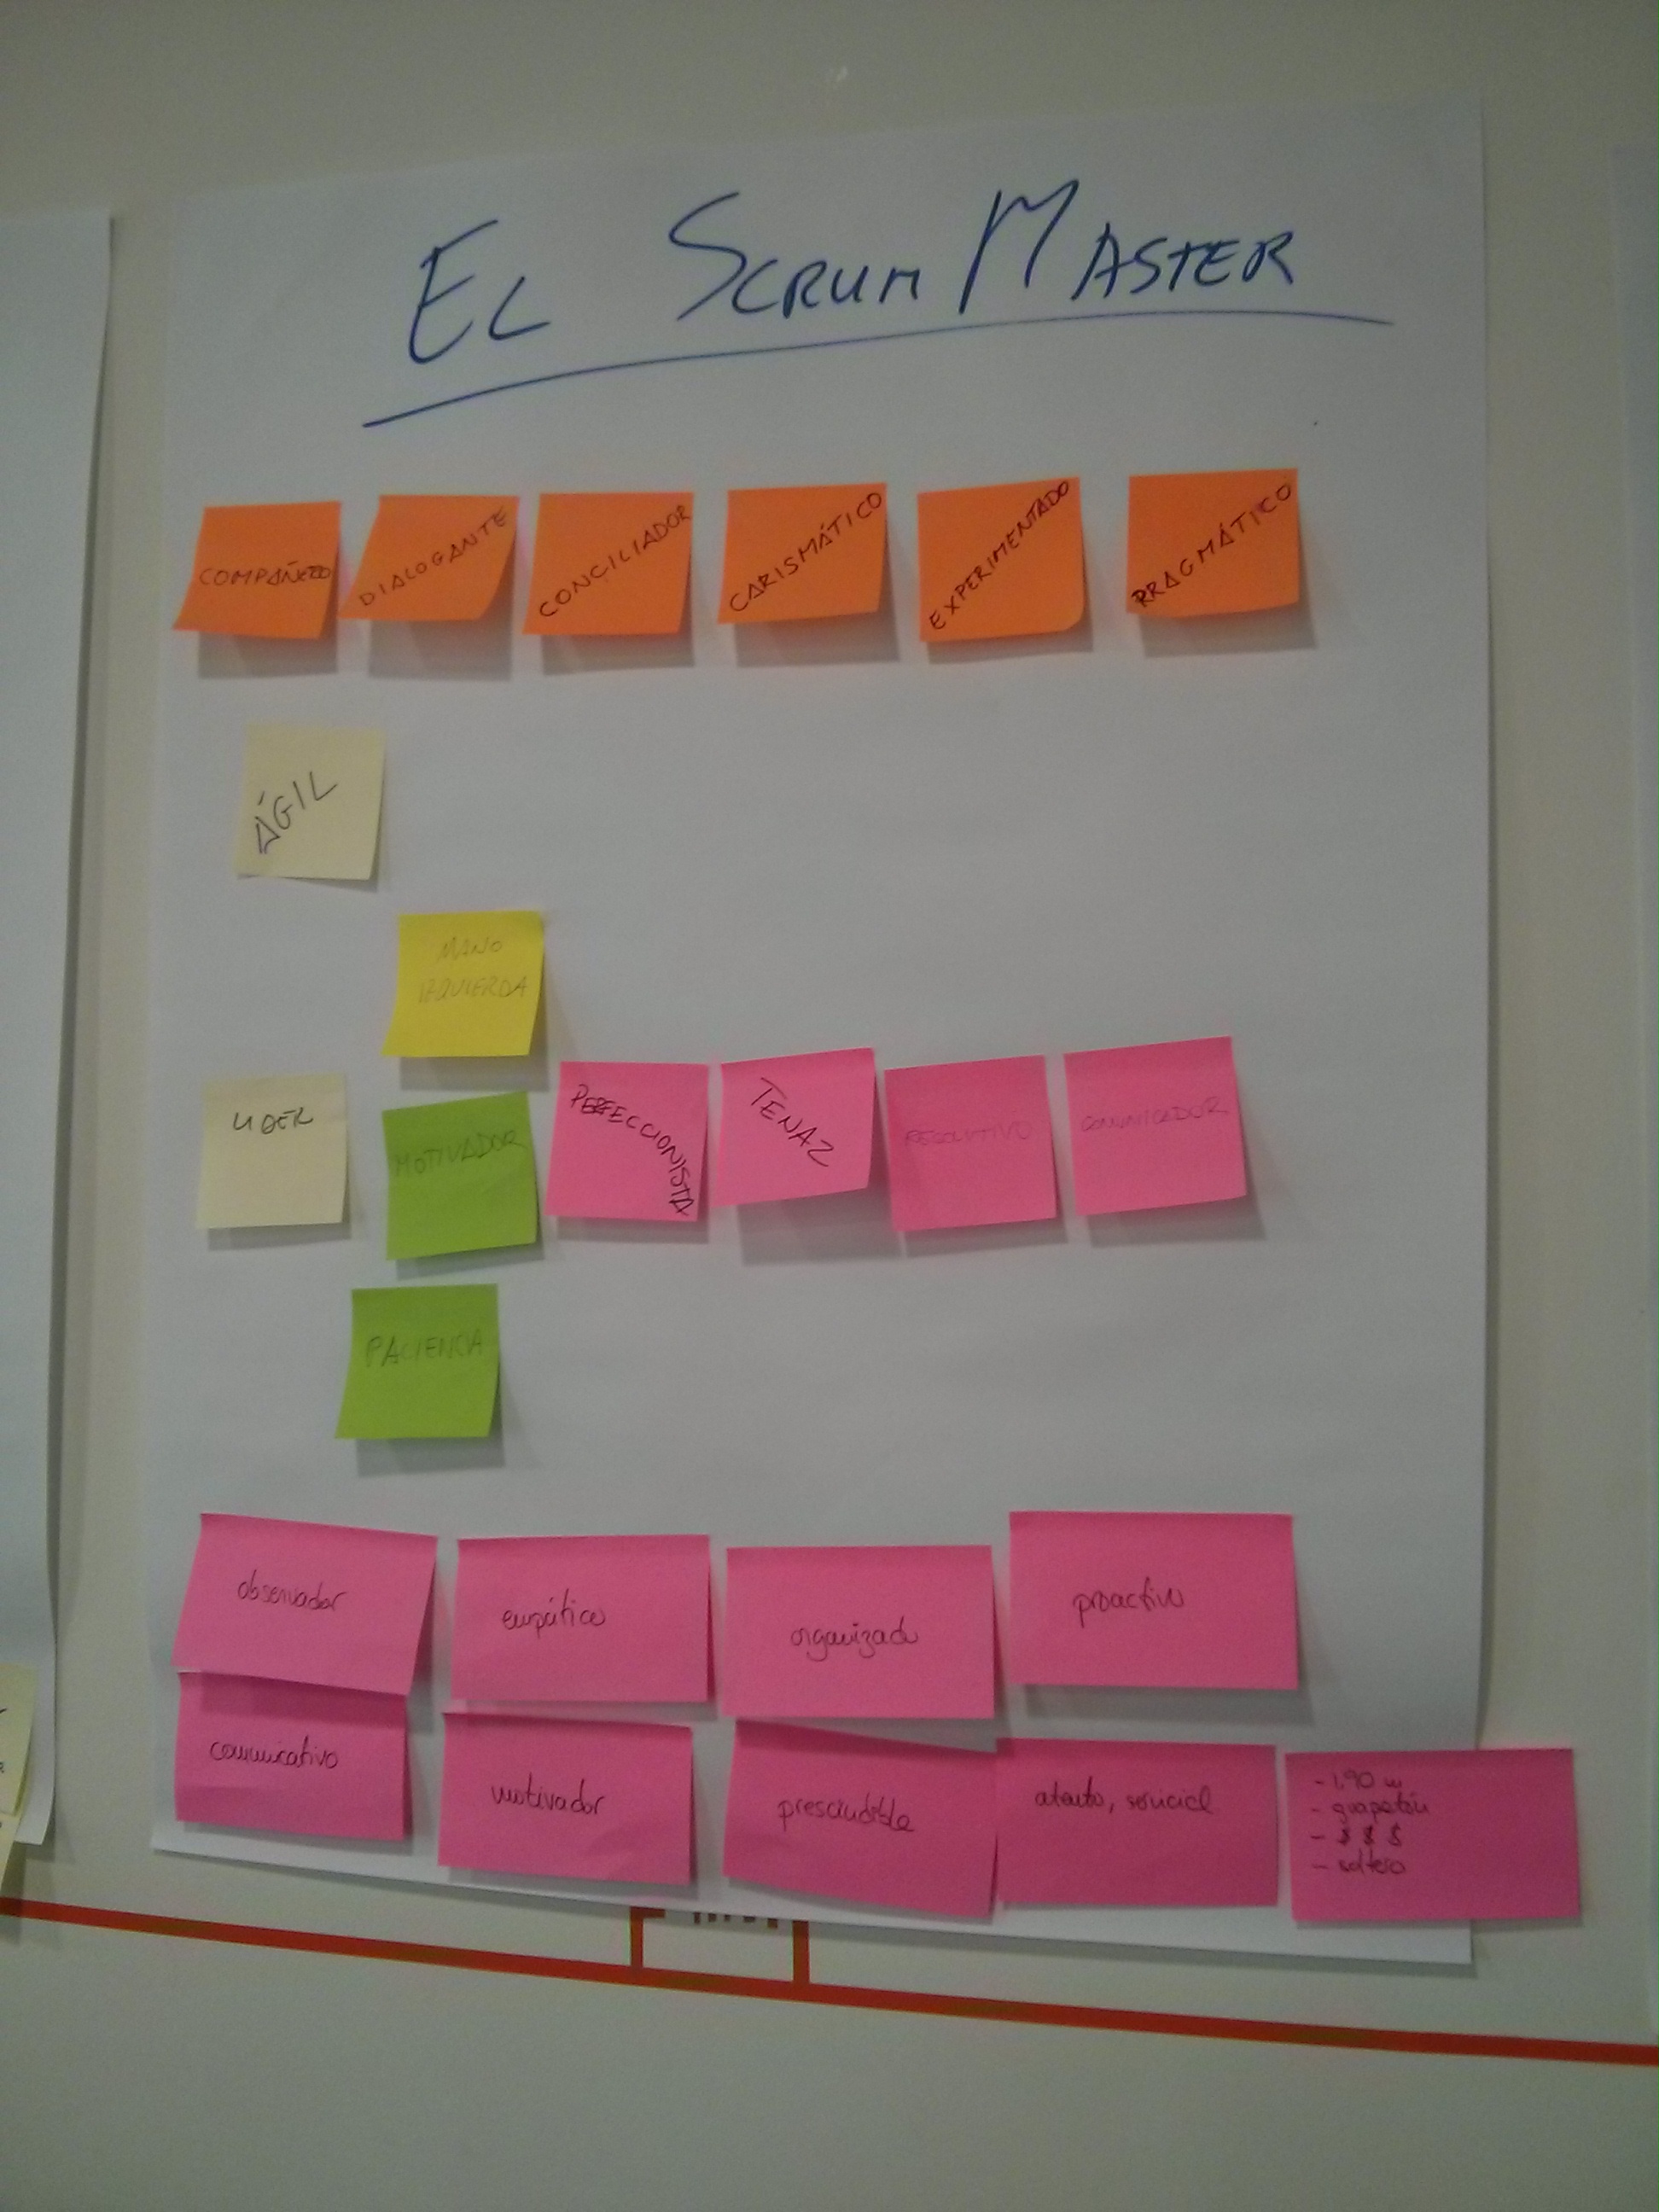 EL SCRUM MASTER
COMPAÑERO
DIALOGANTE
CONCILIADOR
CARISMÁTICO
EXPERIMENTADO
PRAGMÁTICO
ÁGIL
MANO
IZQUIERDA
LIDER
MOTIVADOR
PERFECCIONISTA
TENAZ
RESOLUTIVO
COMUNICADOR
PACIENCIA
observador
empático
organizado
proactivo
comunicativo
motivador
prescindible
atento, servicial
- 1.90 m
- guapetón
- $ $ $
- soltero